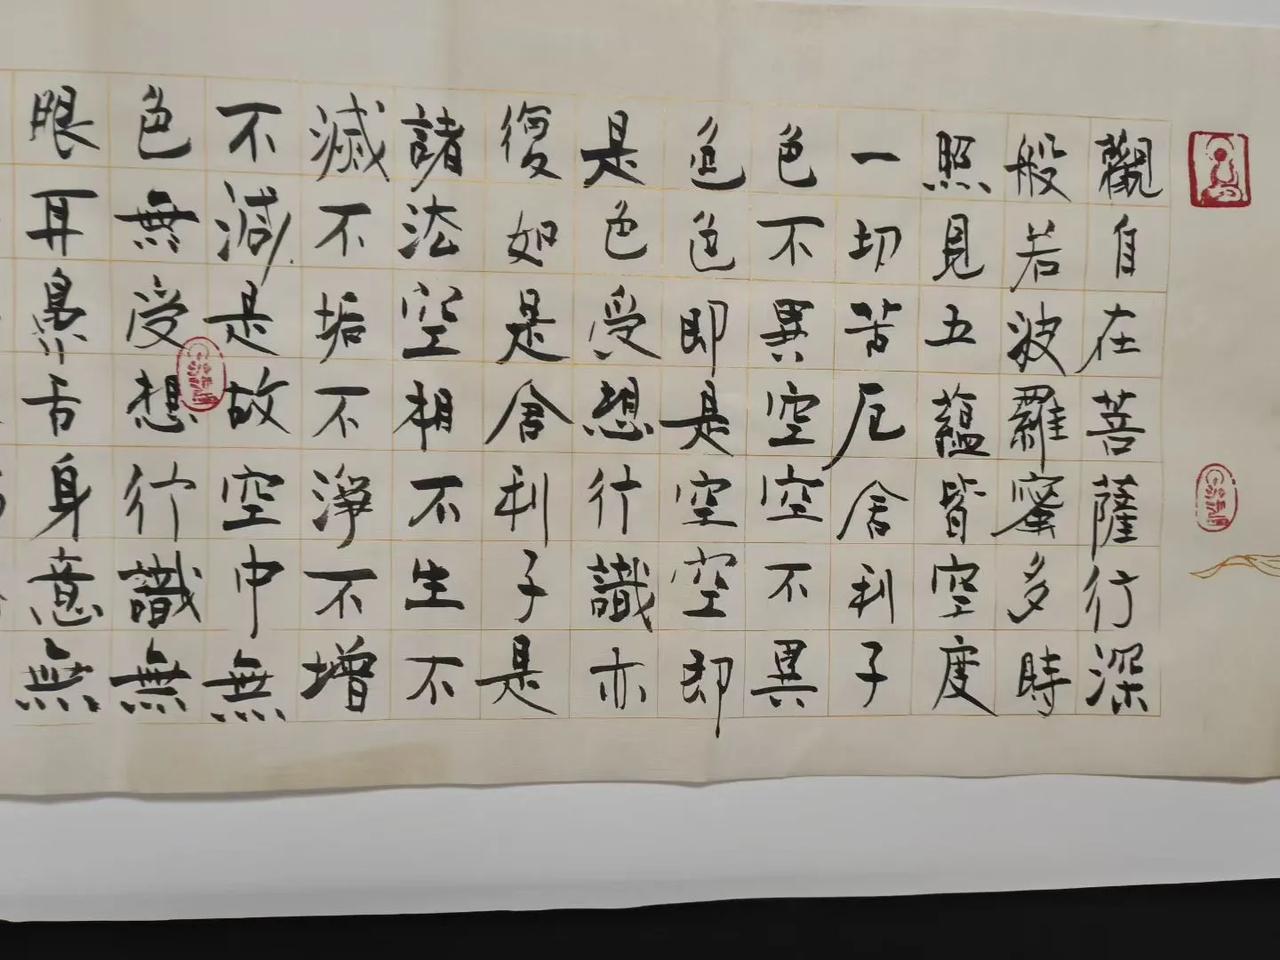 觀自在菩薩行深
般若波羅蜜多時
照見五蘊皆空度
一切苦厄舍利子
色不異空空不異
色色即是空空即
是色受想行識亦
復如是舍利子是
諸法空相不生不
滅不垢不淨不增
不減是故空中無
色無受想行識無
眼耳鼻舌身意無